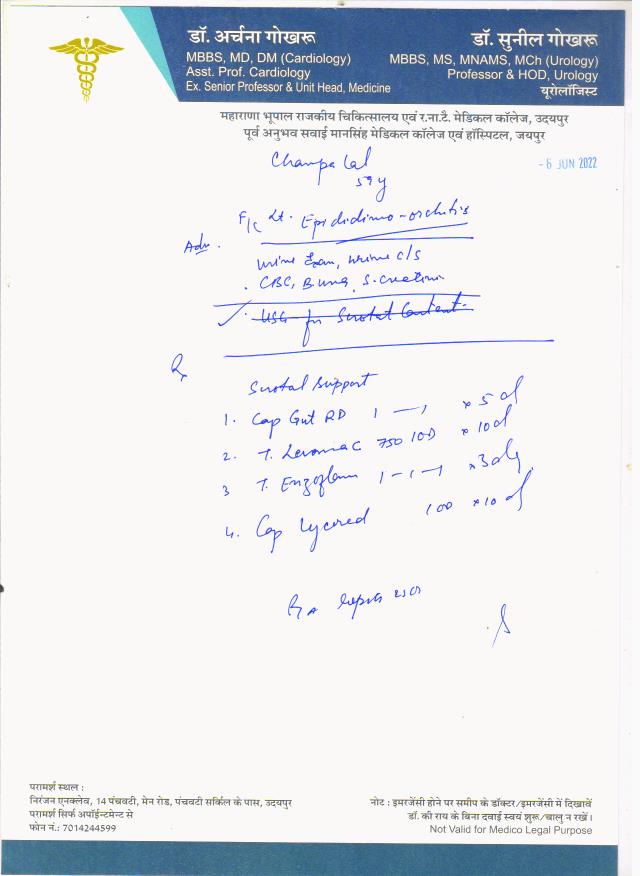 डॉ. अर्चना गोखरू
MBBS, MD, DM (Cardiology)
Asst. Prof. Cardiology
Ex. Senior Professor & Unit Head, Medicine
डॉ. सुनील गोखरू
MBBS, MS, MNAMS, MCh (Urology)
Professor & HOD, Urology
यूरोलॉजिस्ट
महाराणा भूपाल राजकीय चिकित्सालय एवं र.ना.टै. मेडिकल कॉलेज, उदयपुर
पूर्व अनुभव सवाई मानसिंह मेडिकल कॉलेज एवं हॉस्पिटल, जयपुर
Champa Lal
59 y
-6 JUN 2022
F/c Lt. Epididimo-orchitis
Adv.
Urine Exam, urine c/s
CBC, B urea, S. creatinin
USG for Scrotal Content
Rx
Scrotal support
1. Cap Gut RD 1 — 1 x 5 d
2. T. 750 1OD x 10 d
3 T. Enzoflam 1-1-1 x 3 day
4. Cap Lycored 1OD x 10 d
परामर्श स्थल :
निरंजन एनक्लेव, 14 पंचवटी, मेन रोड, पंचवटी सर्किल के पास, उदयपुर
परामर्श सिर्फ अपॉईन्टमेन्ट से
फोन नं.: 7014244599
नोट : इमरजेंसी होने पर समीप के डॉक्टर/इमरजेंसी में दिखावें
डॉ. की राय के बिना दवाई स्वयं शुरू/चालु न रखें।
Not Valid for Medico Legal Purpose